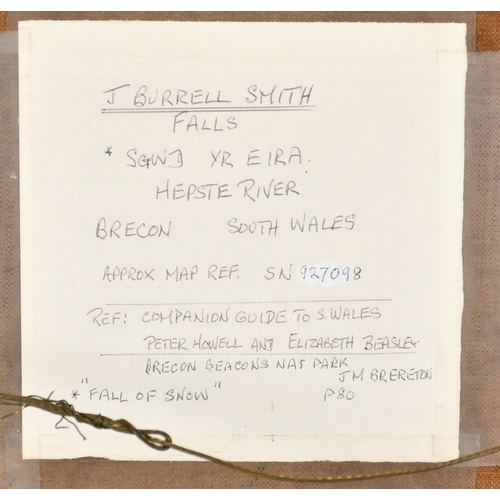 J BURRELL SMITH
FALLS
* SGWD YR EIRA.
HEPSTE RIVER
BRECON SOUTH WALES
APPROX MAP REF. SN 927098
REF: COMPANION GUIDE TO S. WALES
PETER HOWELL AND ELIZABETH BEASLEY
BRECON BEACONS NAT PARK
J M BRERETON
* "FALL OF SNOW" P80